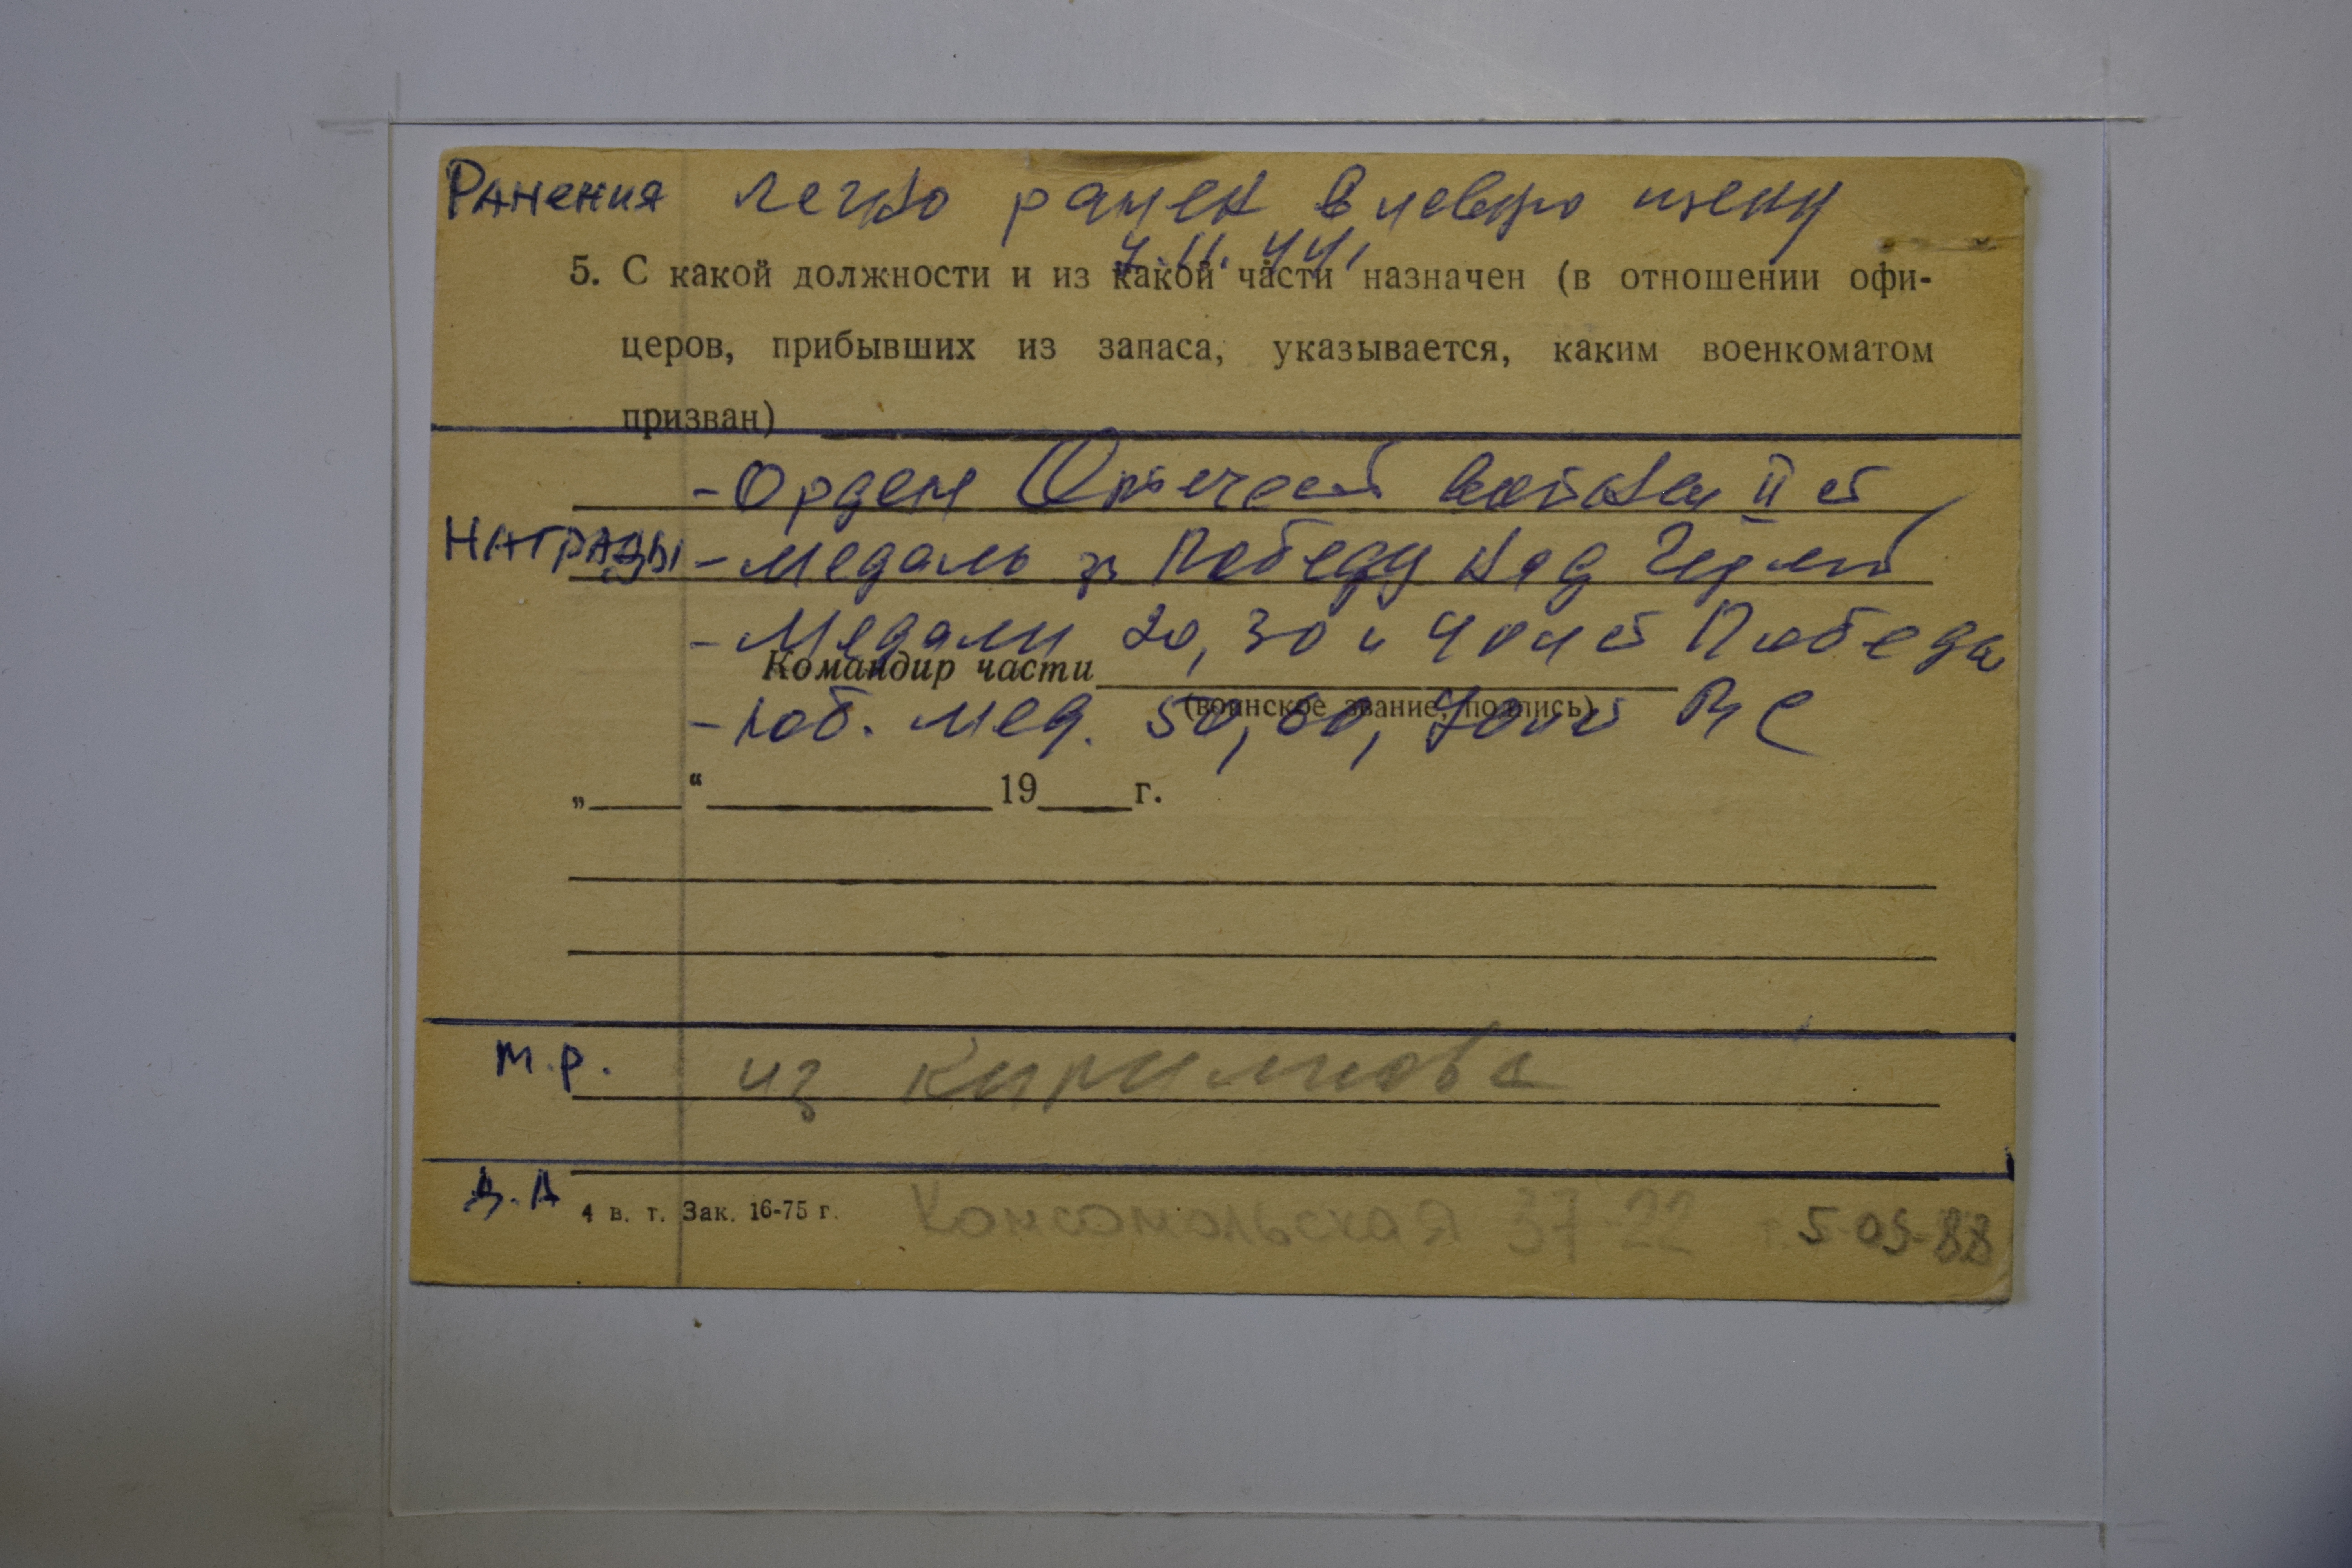 Ранения легко ранен в левую щеку
7.11.44.
5. С какой должности и из какой части назначен (в отношении офи-
церов, прибывших из запаса, указывается, каким военкоматом
призван)
- Орден Отечест войны II ст
НАГРАДЫ - Медаль за Победу над Герм
- Медали 20, 30 и 40 лет Победы
Командир части
(воинское звание, подпись)
- юб. мед. 50, 60, 70 лет
„ “ 19 г.
М.Р. из
Д.А 4 в. т. Зак. 16-75 г. Комсомольская 37-22 т. 5-09-88